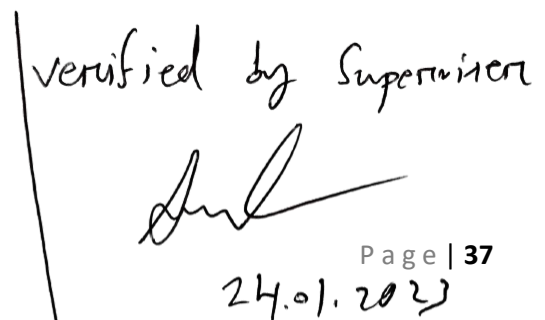 verified by Supervisor
Page | 37
24.01.2023